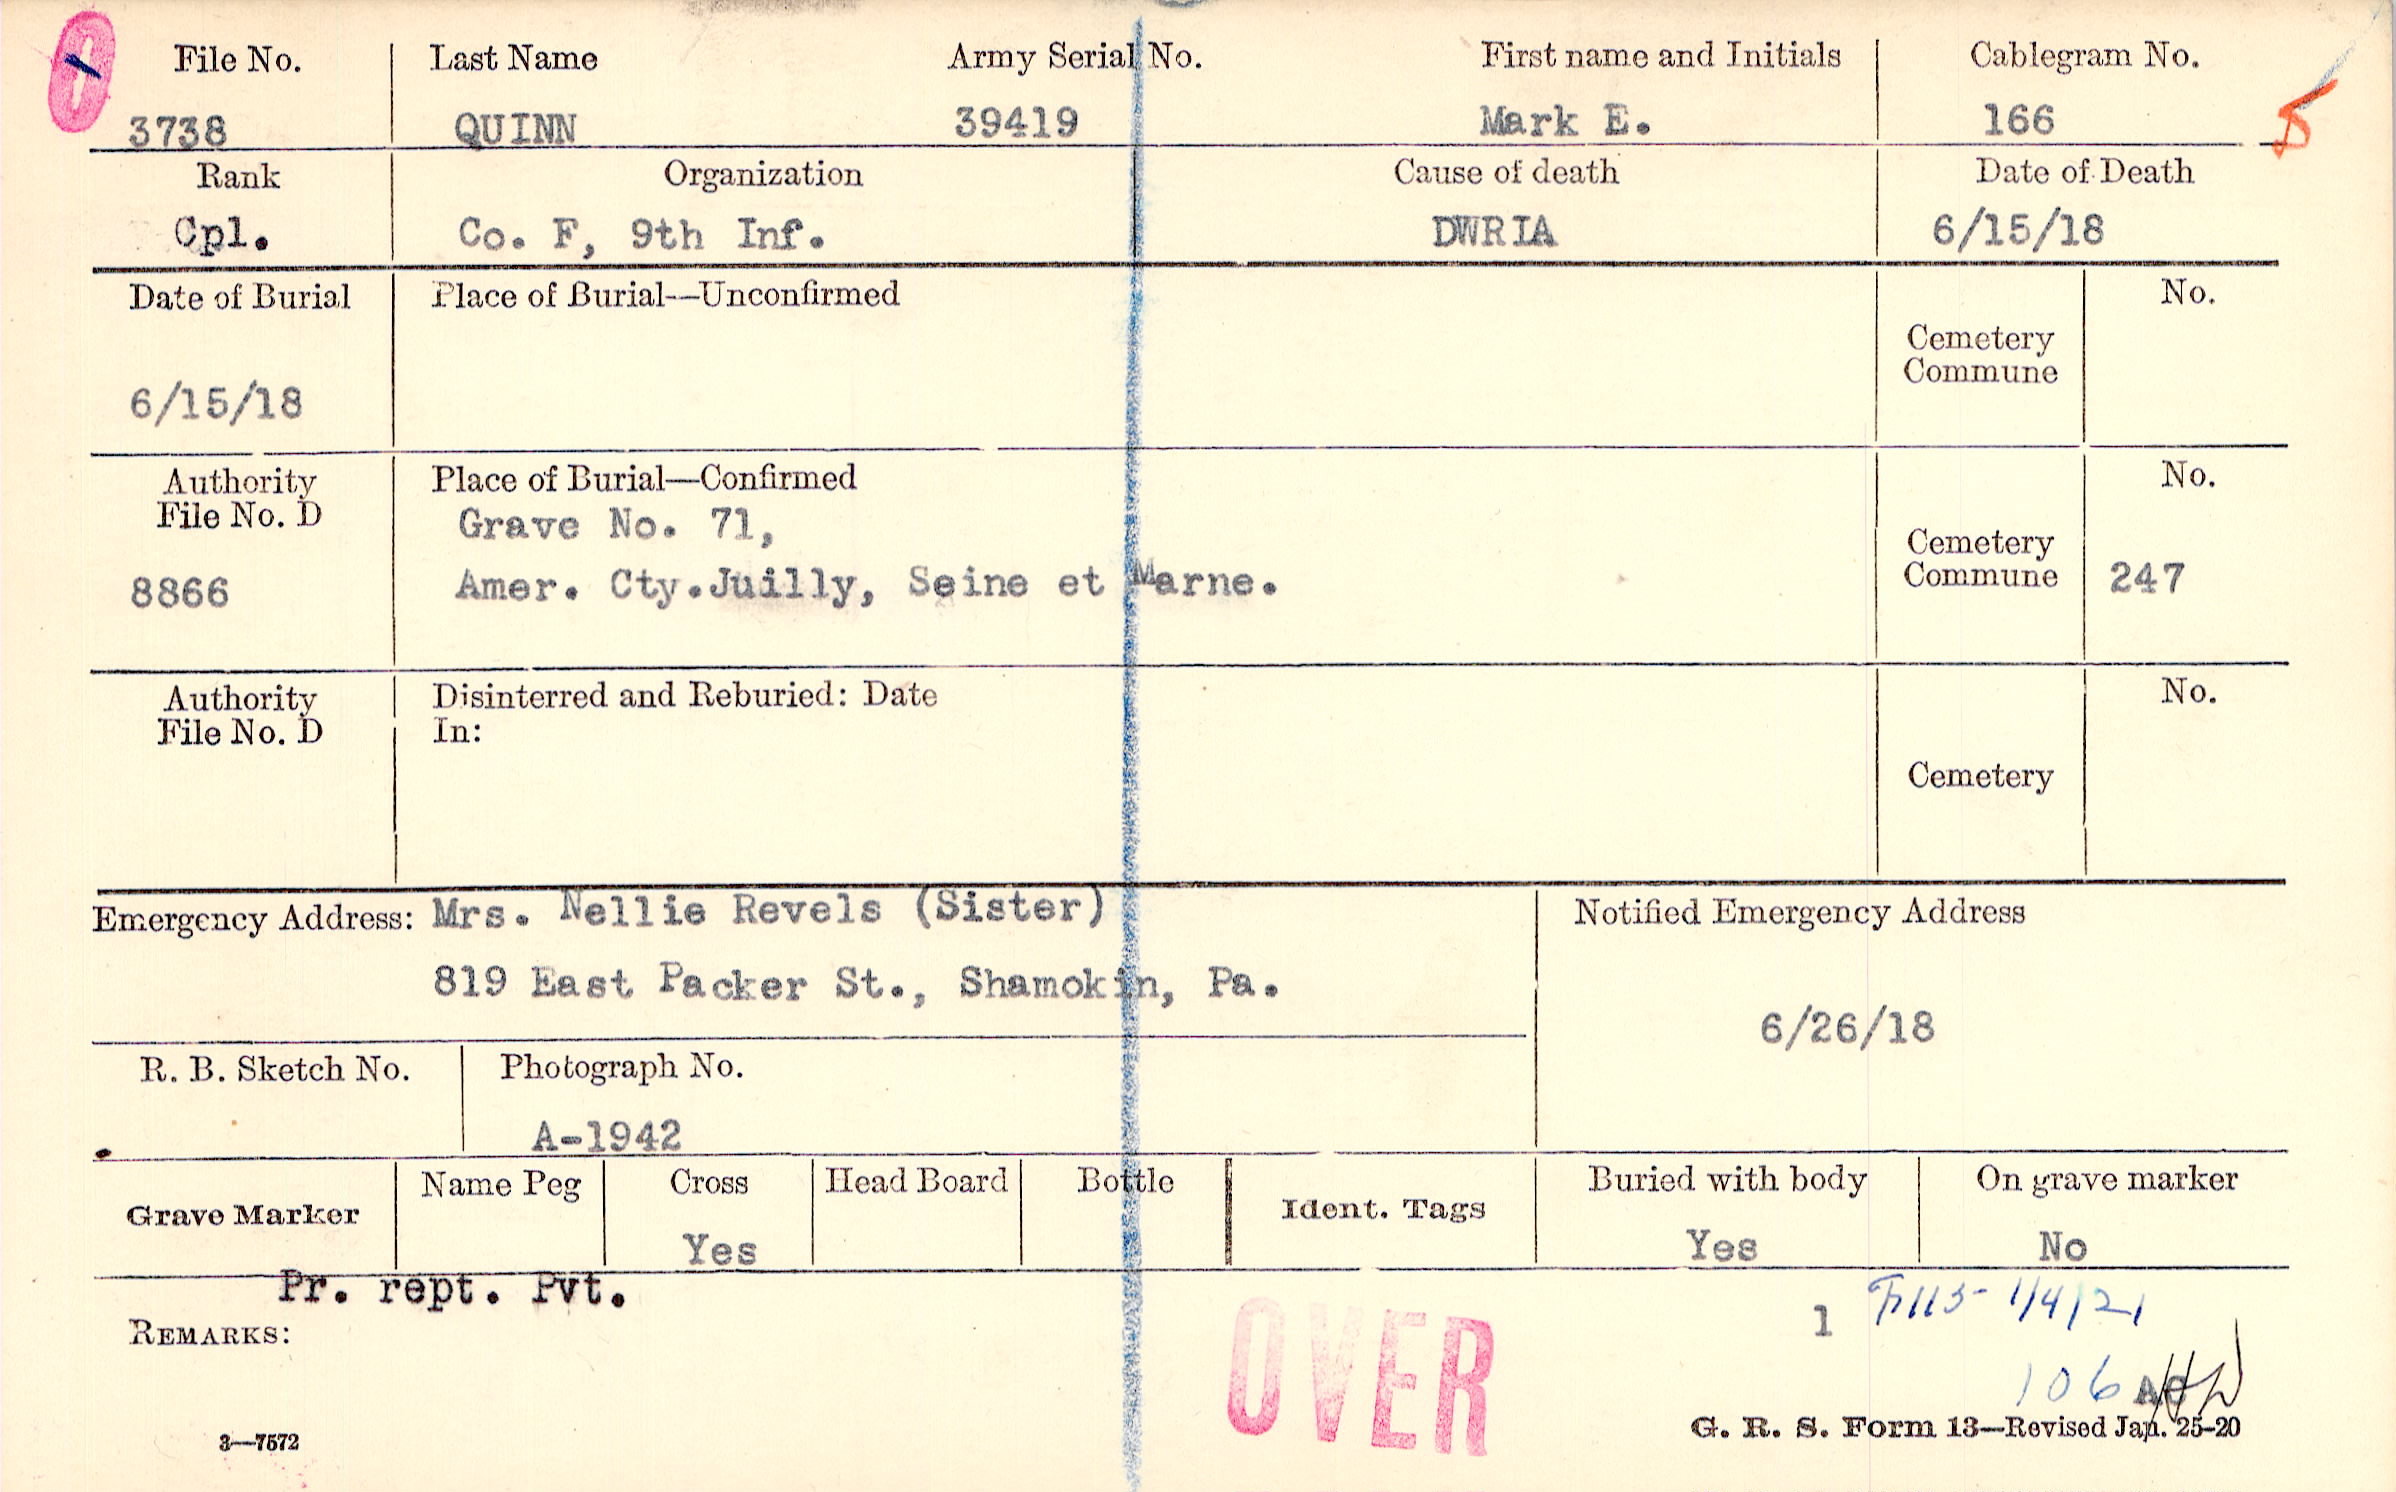 File No. Last Name Army Serial No. First name and Initials Cablegram No.
3738 QUINN 39419 Mark E. 166
Rank Organization Cause of death Date of Death
Cpl. Co. F, 9th Inf. DWRIA 6/15/18
Date of Burial Place of Burial—Unconfirmed No.
Cemetery
Commune
6/15/18
Authority Place of Burial—Confirmed No.
File No. D Grave No. 71,
8866 Amer. Cty.Juilly, Seine et Marne.
Cemetery
Commune 247
Authority Disinterred and Reburied: Date No.
File No. D In:
Cemetery
Emergency Address: Mrs. Nellie Revels (Sister) Notified Emergency Address
819 East Packer St., Shamokin, Pa.
6/26/18
R. B. Sketch No. Photograph No.
A-1942
Grave Marker Name Peg Cross Head Board Bottle Ident. Tags Buried with body On grave marker
Yes Yes No
Pr. rept. Pvt.
REMARKS: 1 1/4/21
OVER
106
3—7572 G. R. S. Form 13—Revised Jan. 25-20